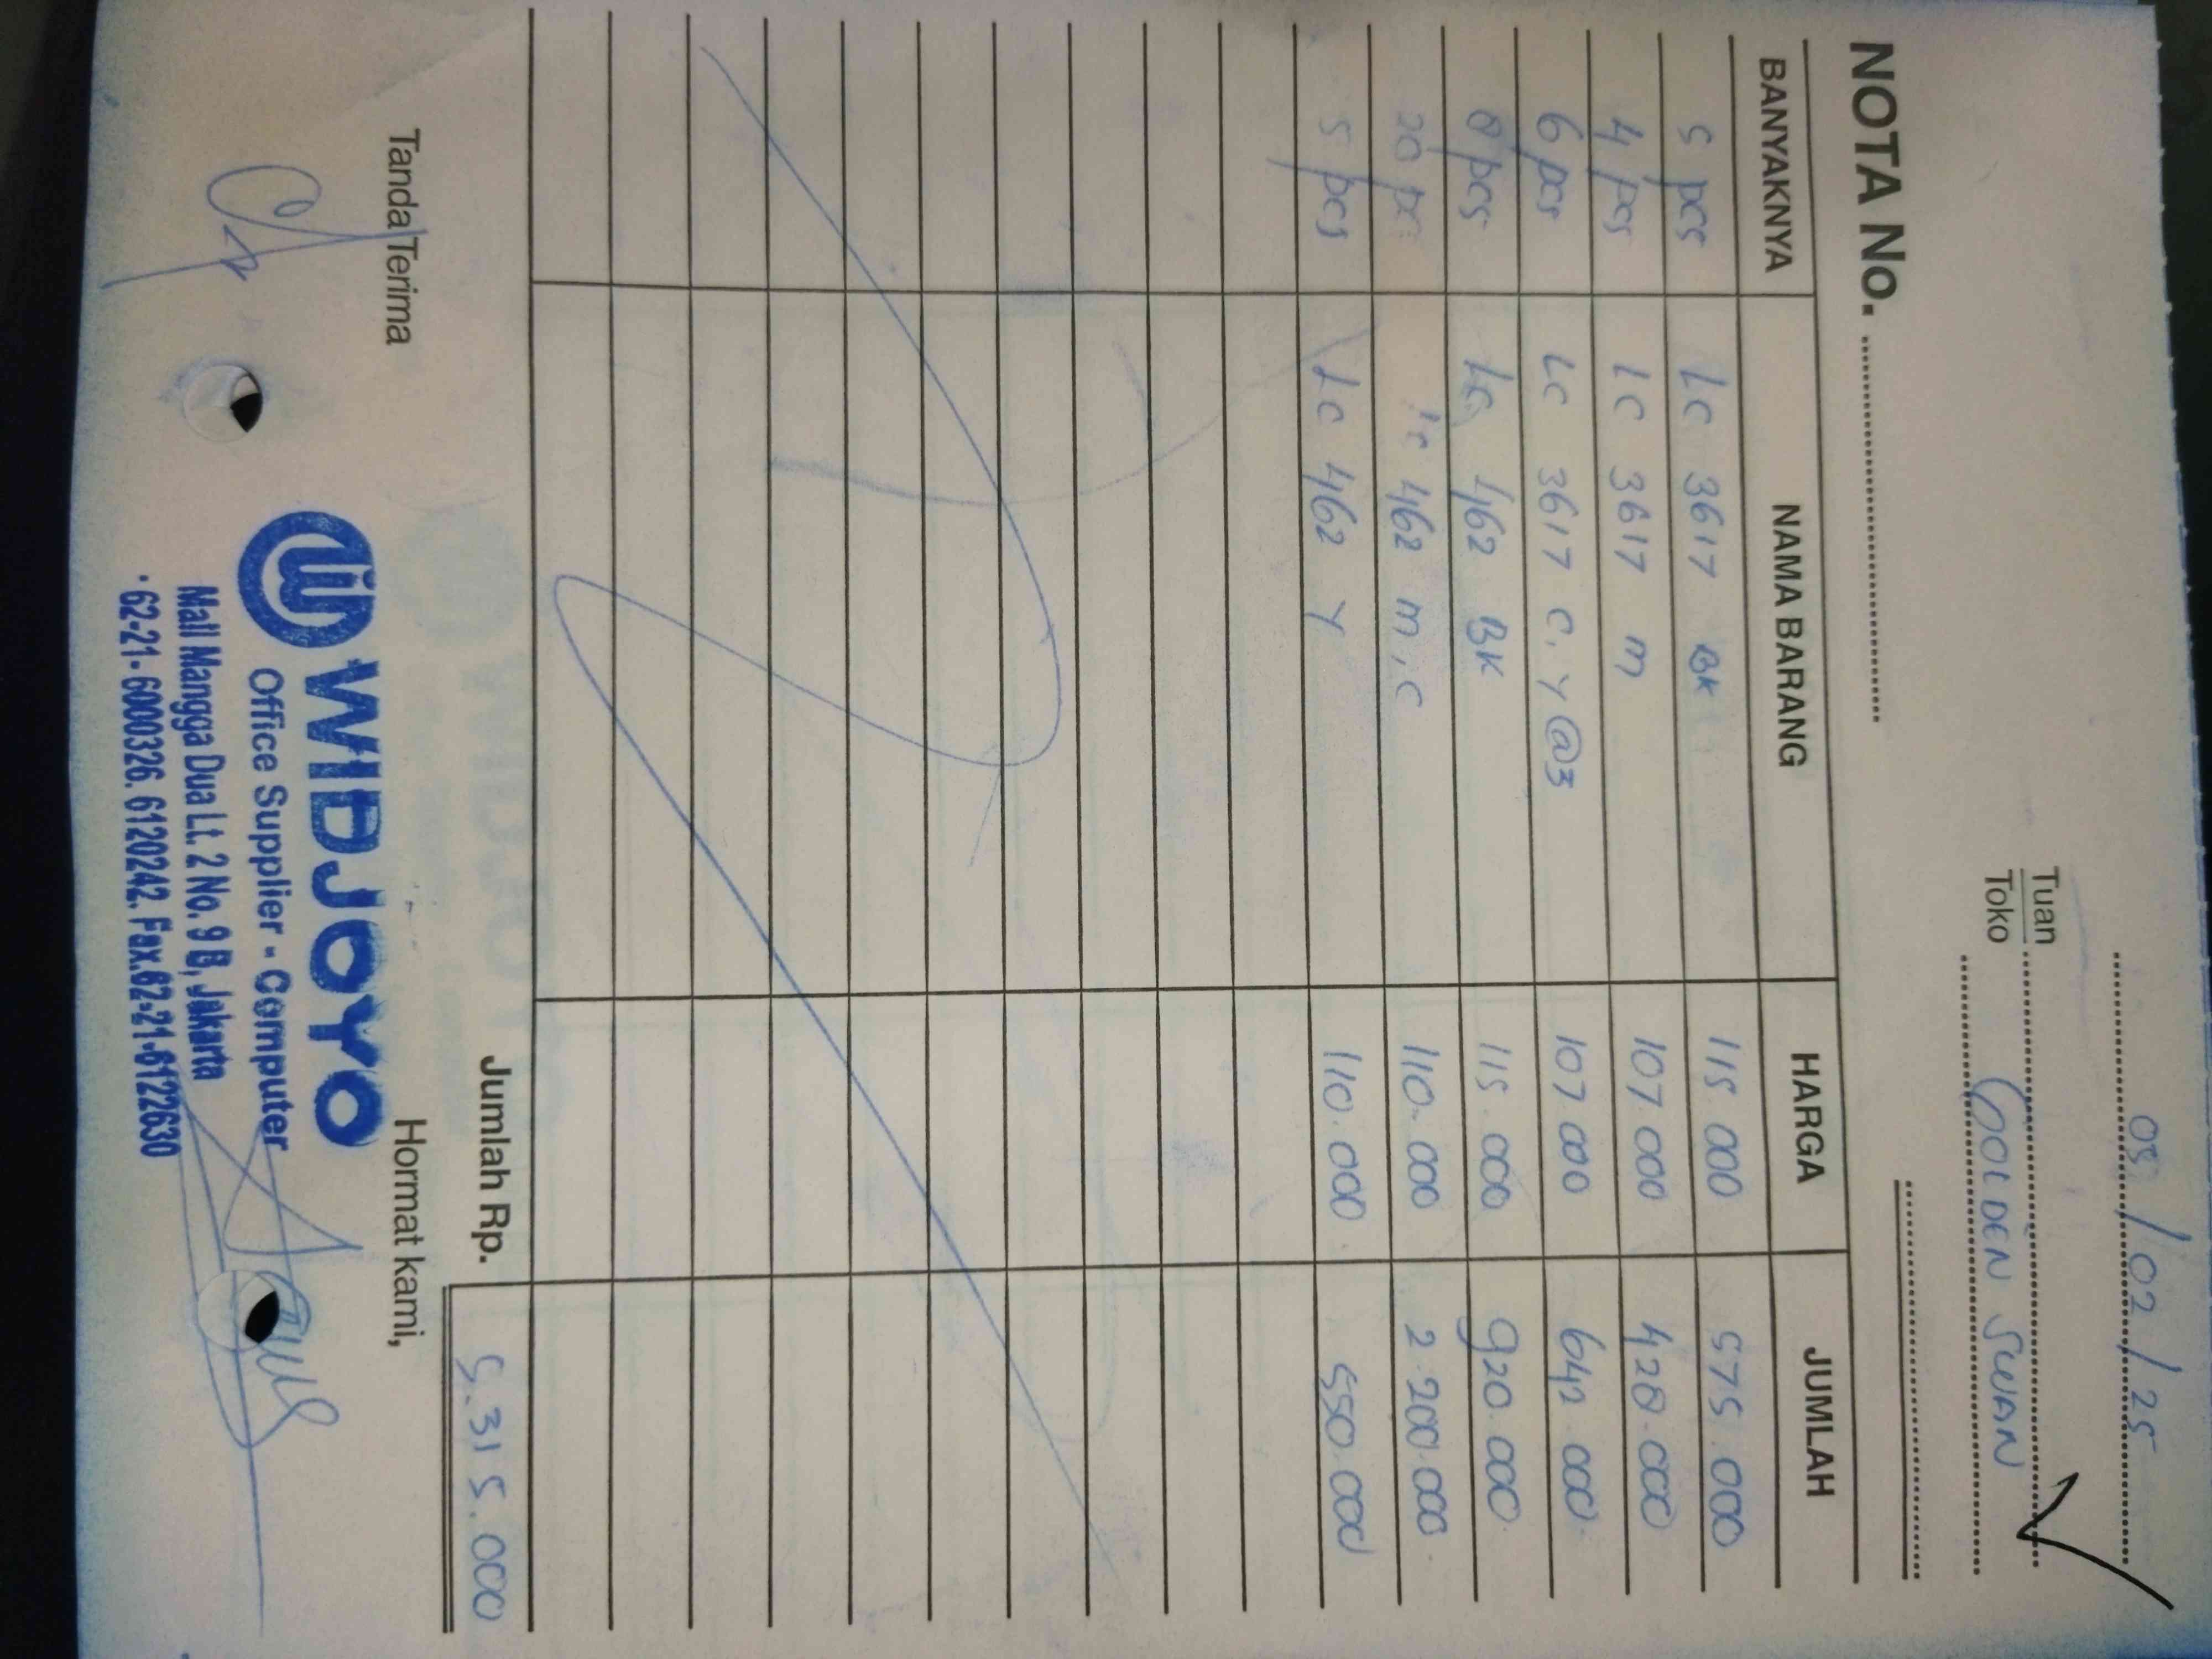 05/02/25
Tuan
Toko GOLDEN SWAN
NOTA No.
BANYAKNYA NAMA BARANG HARGA JUMLAH
5 pcs LC 3617 BK 115.000 575.000
4 pcs LC 3617 M 107.000 428.000
6 pcs LC 3617 C, Y @3 107.000 642.000
8 pcs LC 462 BK 115.000 920.000
20 pc LC 462 M, C 110.000 2.200.000
5 pcs LC 462 Y 110.000 550.000
Jumlah Rp. 5.315.000
Tanda Terima Hormat kami,
WIDJOYO
Office Supplier - Computer
Mall Mangga Dua Lt. 2 No. 9 B, Jakarta
62-21-6000326. 6120242. Fax.62-21-6122630